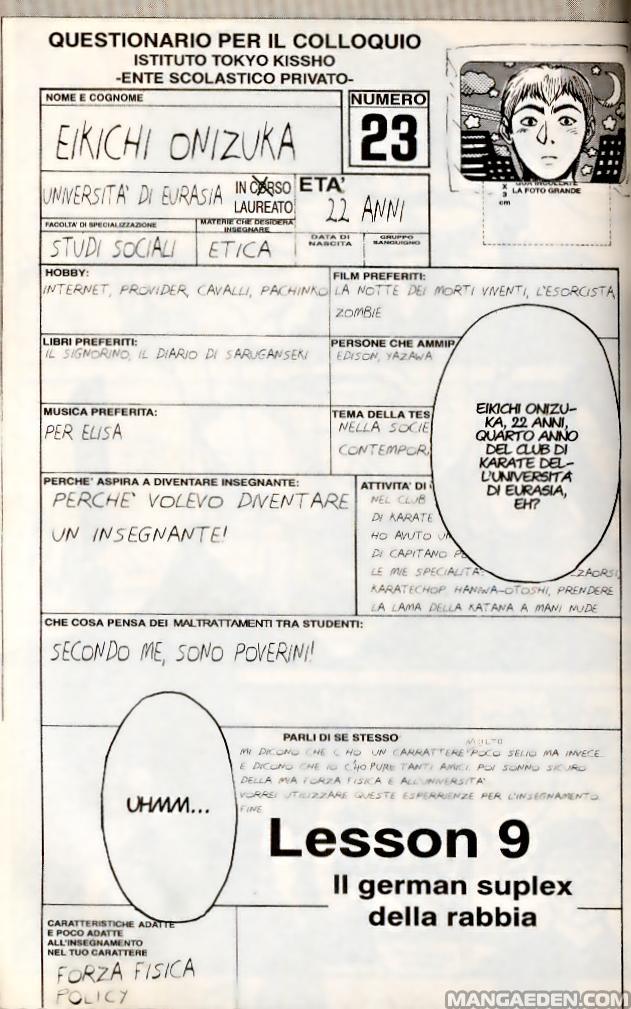 QUESTIONARIO PER IL COLLOQUIO
ISTITUTO TOKYO KISSHO
-ENTE SCOLASTICO PRIVATO-
NOME E COGNOME
EIKICHI ONIZUKA
NUMERO
23
LA FOTO GRANDE
X
3
cm
UNIVERSITA' DI EURASIA
IN CORSO
LAUREATO
ETA'
22 ANNI
FACOLTA' DI SPECIALIZZAZIONE
STUDI SOCIALI
MATERIE CHE DESIDERA
INSEGNARE
ETICA
DATA DI
NASCITA
GRUPPO
SANGUIGNO
HOBBY:
INTERNET, PROVIDER, CAVALLI, PACHINKO
FILM PREFERITI:
LA NOTTE DEI MORTI VIVENTI, L'ESORCISTA,
ZOMBIE
LIBRI PREFERITI:
IL SIGNORINO, IL DIARIO DI SARUGANSEKI
PERSONE CHE AMMIR
EDISON, YAZAWA
MUSICA PREFERITA:
PER ELISA
TEMA DELLA TES
NELLA SOCIE
CONTEMPOR
EIKICHI ONIZU-
KA, 22 ANNI,
QUARTO ANNO
DEL CLUB DI
KARATE DEL-
L'UNIVERSITÀ
DI EURASIA,
EH?
PERCHE' ASPIRA A DIVENTARE INSEGNANTE:
PERCHE' VOLEVO DIVENTARE
UN INSEGNANTE!
ATTIVITA' DI
NEL CLUB
DI KARATE
HO AVUTO U
DI CAPITANO
LE MIE SPECIALITA': ZAORSI,
KARATECHOP HANIWA-OTOSHI, PRENDERE
LA LAMA DELLA KATANA A MANI NUDE
CHE COSA PENSA DEI MALTRATTAMENTI TRA STUDENTI:
SECONDO ME, SONO POVERINI!
PARLI DI SE STESSO
MOLTO
MI DICONO CHE C'HO UN CARRATTERE POCO SELIO MA INVECE
E DICONO CHE IO C'HO PURE TANTI AMICI. POI SONNO SICURO
DELLA MIA FORZA FISICA E ALL'UNIVERSITA'
VORREI UTILIZZARE QUESTE ESPERRIENZE PER L'INSEGNAMENTO.
FINE
UHMM...
Lesson 9
Il german suplex
della rabbia
CARATTERISTICHE ADATTE
E POCO ADATTE
ALL'INSEGNAMENTO
NEL TUO CARATTERE
FORZA FISICA
POLICY
MANGAEDEN.COM